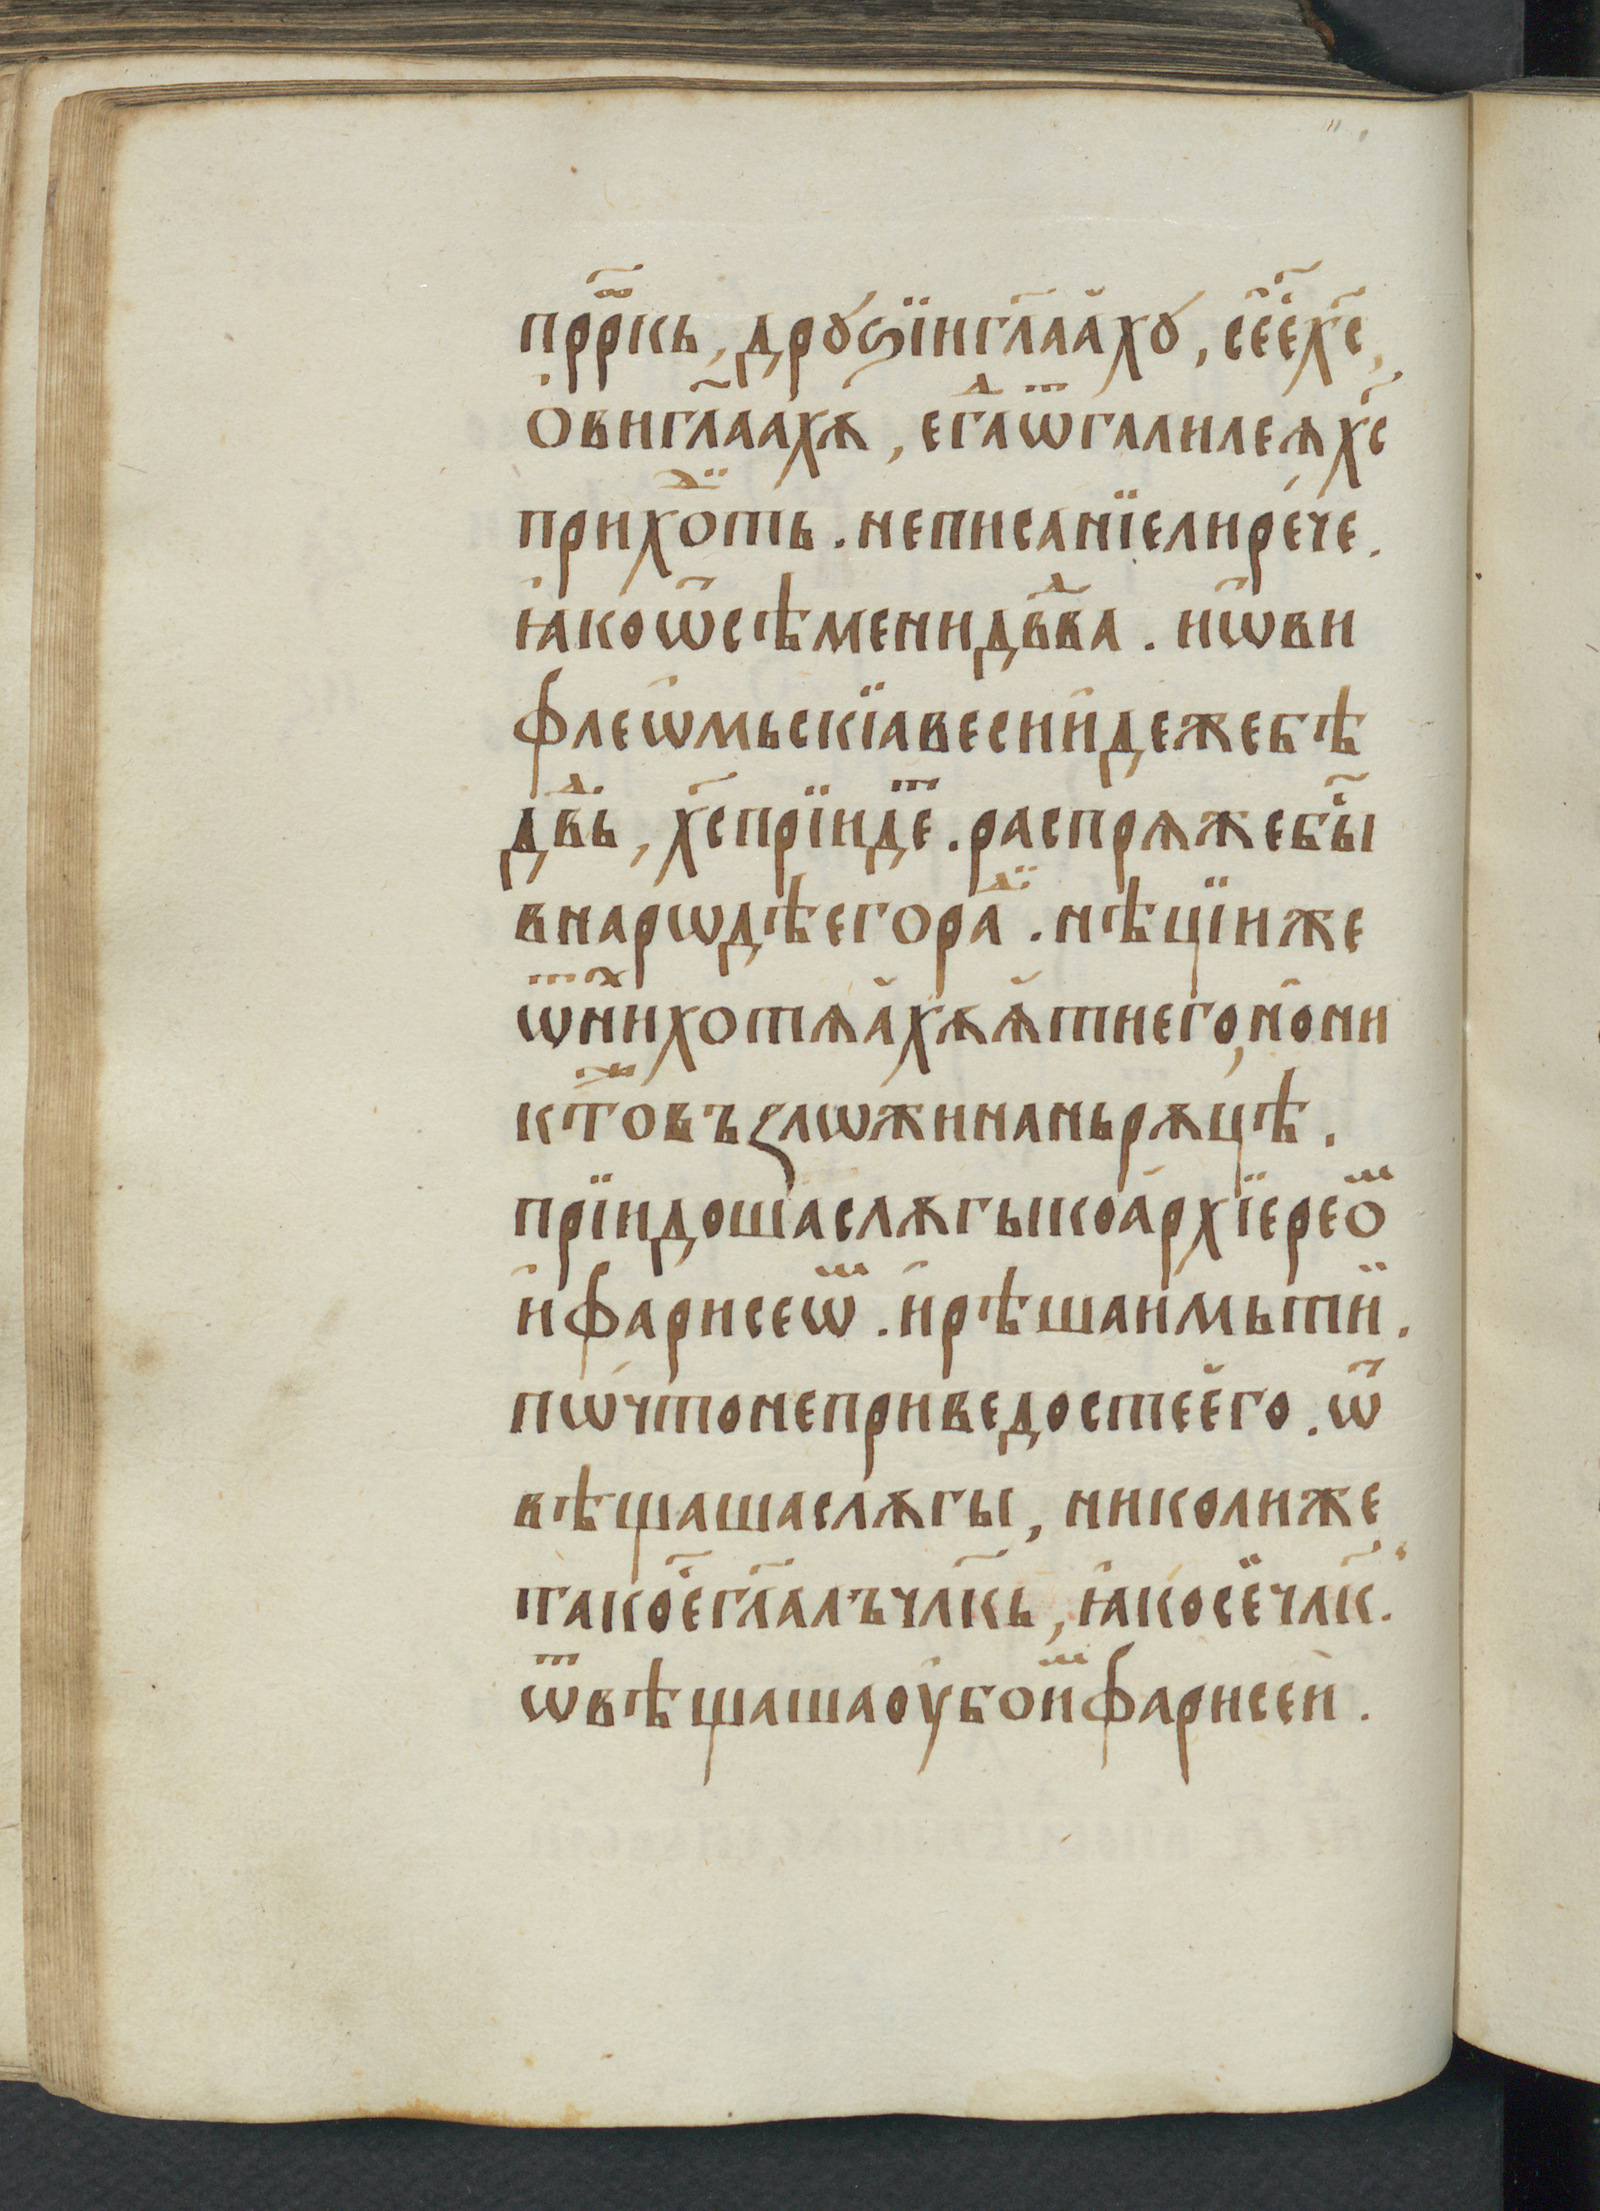 прⷪ҇ркь, дрꙋѕїигл҃аахꙋ, се́е҆х҃с,
ѻвигл҃аахѫ, егⷣаѿгалилеѧх҃с
прихѻⷣ҇ть. неписанїелирече.
ꙗкоѿсѣменидв҃ⷣва. ѝѡви
флеѡмьскїавесиидежебѣ
двⷣь, х҃спрїидеⷮ. распрѧжебы҃
внарѡдѣегораⷣ. нѣцїиже
ѿниⷯхотѧахѫѫтиего, нони
ктоⷤвъꙁлѡжинаньрѫцѣ.
прїидошаслѫгыкоархїереѻⷨ
ифарисеѡⷨ. ирѣшаимьтїи.
пѡчтонеприведостеего. ѿ
вѣщашаслѫгы, николиже
такое҃гл҃алъчл҃кь, ꙗкосеичл҃к.
ѿвѣщашаоубоиⷨфарисеи.